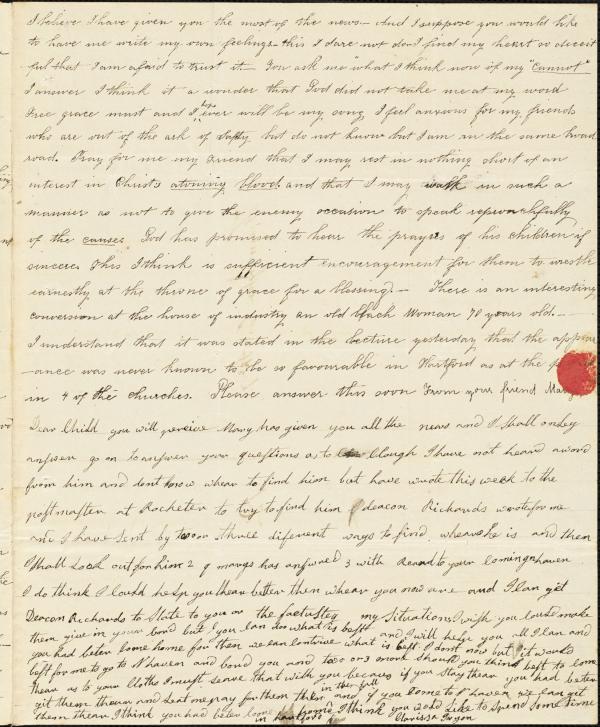 I believe I have given you the most of the news— And I suppose you would like
to have me write my own feelings— this I dare not do I find my heart so deceit
ful that I am afaid to trust it— You ask me "what I think now of my "cannot"
I answer I think it a wonder that God did not take me at my word
Free grace must and I hope ever will be my song I feel anxious for my friends
who are out of the ark of safty but do not know but I am in the same broad
road. Pray for me my friend that I may rest in nothing short of an
interest in Christs atoning blood and that I may walk in such a
manner as not to give the enemy occasion to speak reproachfully
of the cause. God has promised to hear the prayers of his children if
sincere. This I think is sufficient encouragement for them to wrestle
earnestly at the throne of grace for a blessing— There is an interesting
conversion at the house of industry an old black Woman 70 years old.—
I understand that it was stated in the lecture yesterday that the appear
-ance was never known to be so favourable in Hartford as at the
in 4 of the churches. Please answer this soon From your friend Mary
Dear Child you will perceive Mary has given you all the news and I Shall onley
answer go on to answer your questions as to Clough I have not heard a word
from him and dont know whear to find him but have wrote this week to the
postmaster at Rochester to try to find him deacon Richards wrote for me
and I have Sent by two or three diferent ways to find whear he is and then
I Shall Look out for him 2 q marys has answered 3 with Reard to your Coming nhaven
I do think I Could help you thear better then whear you now are and I Can get
Deacon Richards to State to you the facts my Situation I wish you Could make
them give in your bond but you Can do what is best and I will help you all I Can and
you had beter Come home for then we Can Contrive what is best I dont now but it would
best for me to go to N haven and bord you and two or 3 more Should you think best to Come
thear as to your Cloths I must Serve that with you because if you Stay thear you had beter
get them thear and Let me pay for them then in the fall now if you Come to N haven we Can get
them thear I think you had beter Come home I think you wood Like to Spend Some time
in hartford Clarissa